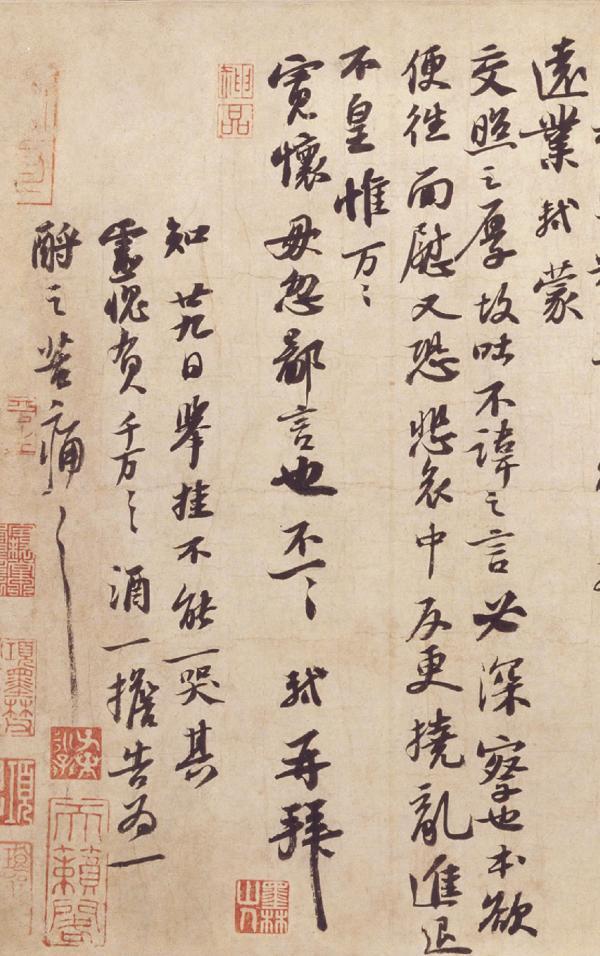 遠業軾蒙
交照之厚故吐不諱之言必深察也本欲
便往面慰又恐悲哀中反更撓亂進退
不皇惟万〻
寬懷毋忽鄙言也不一〻軾再拜
知廿九日舉挂不能一哭其
靈愧負千万〻酒一擔告為一
酹之苦痛〻
神品
墨林山人
天籟閣